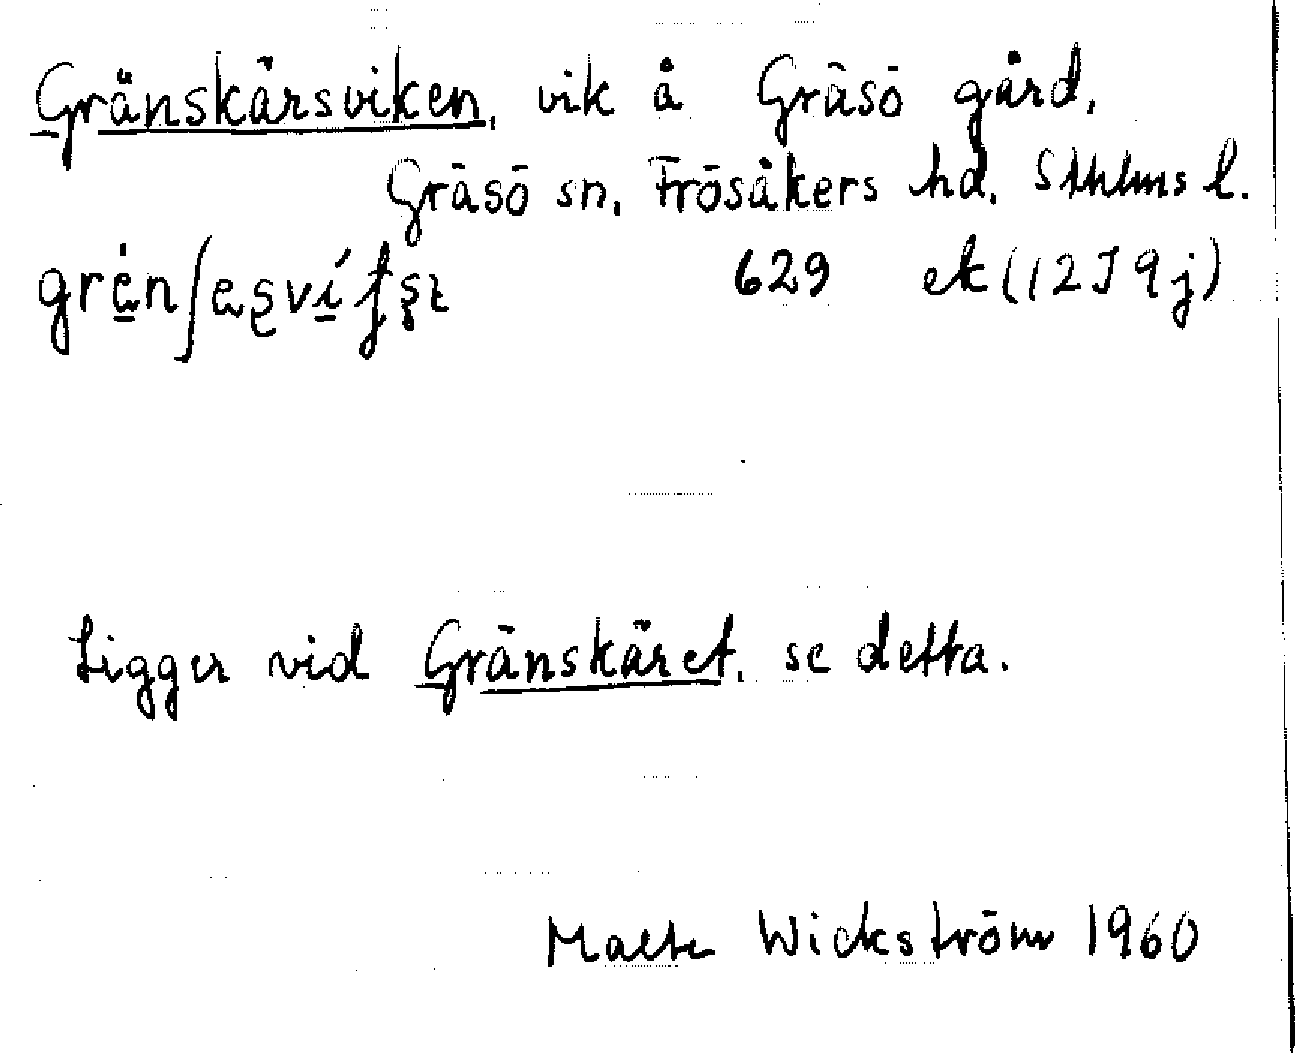 Gränskärsviken, vik å Gräsö gård,
Gräsö sn, Frösåkers hd, Sthlms l.
629 ek (12I 9j)
Ligger vid Gränskäret, se detta.
Malte Wickström 1960